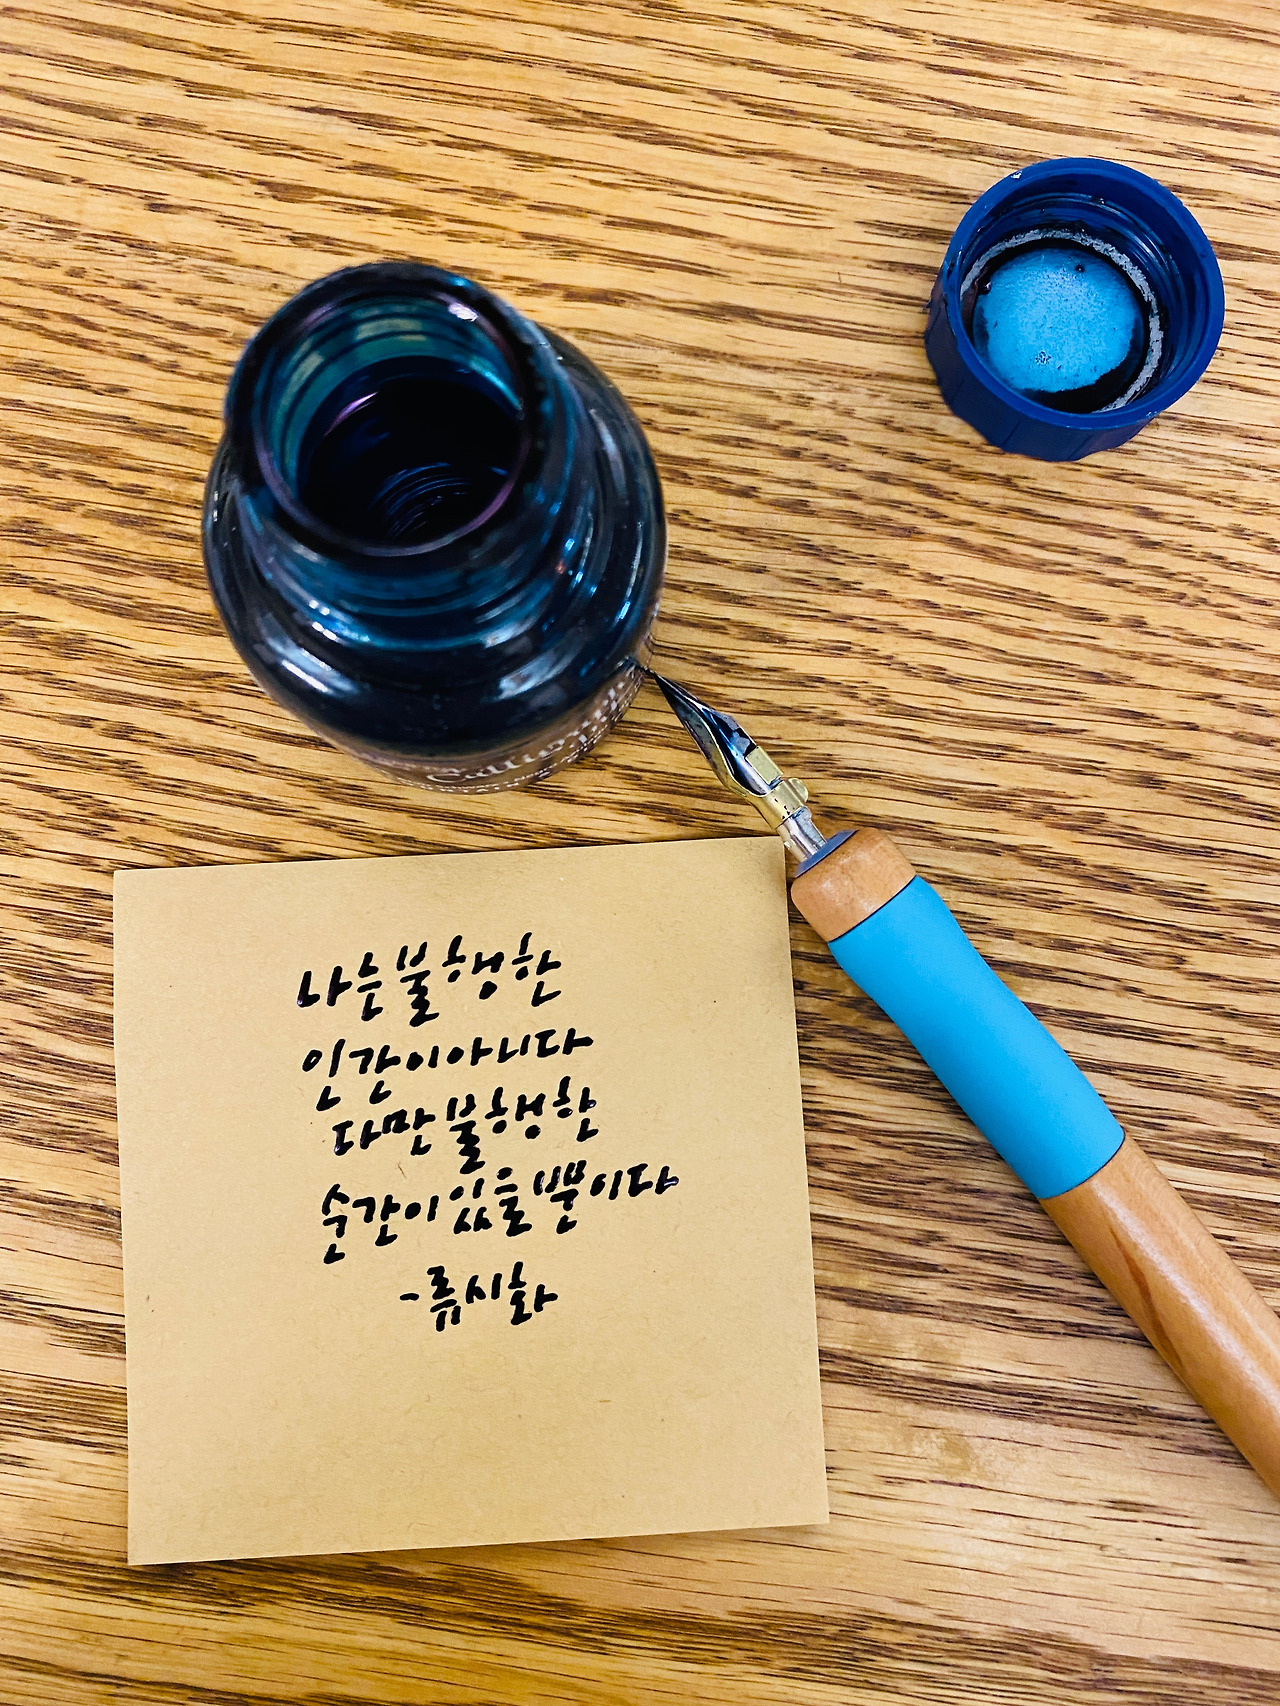 나는 불행한
인간이 아니다
다만 불행한
순간이 있을 뿐이다
-류시화